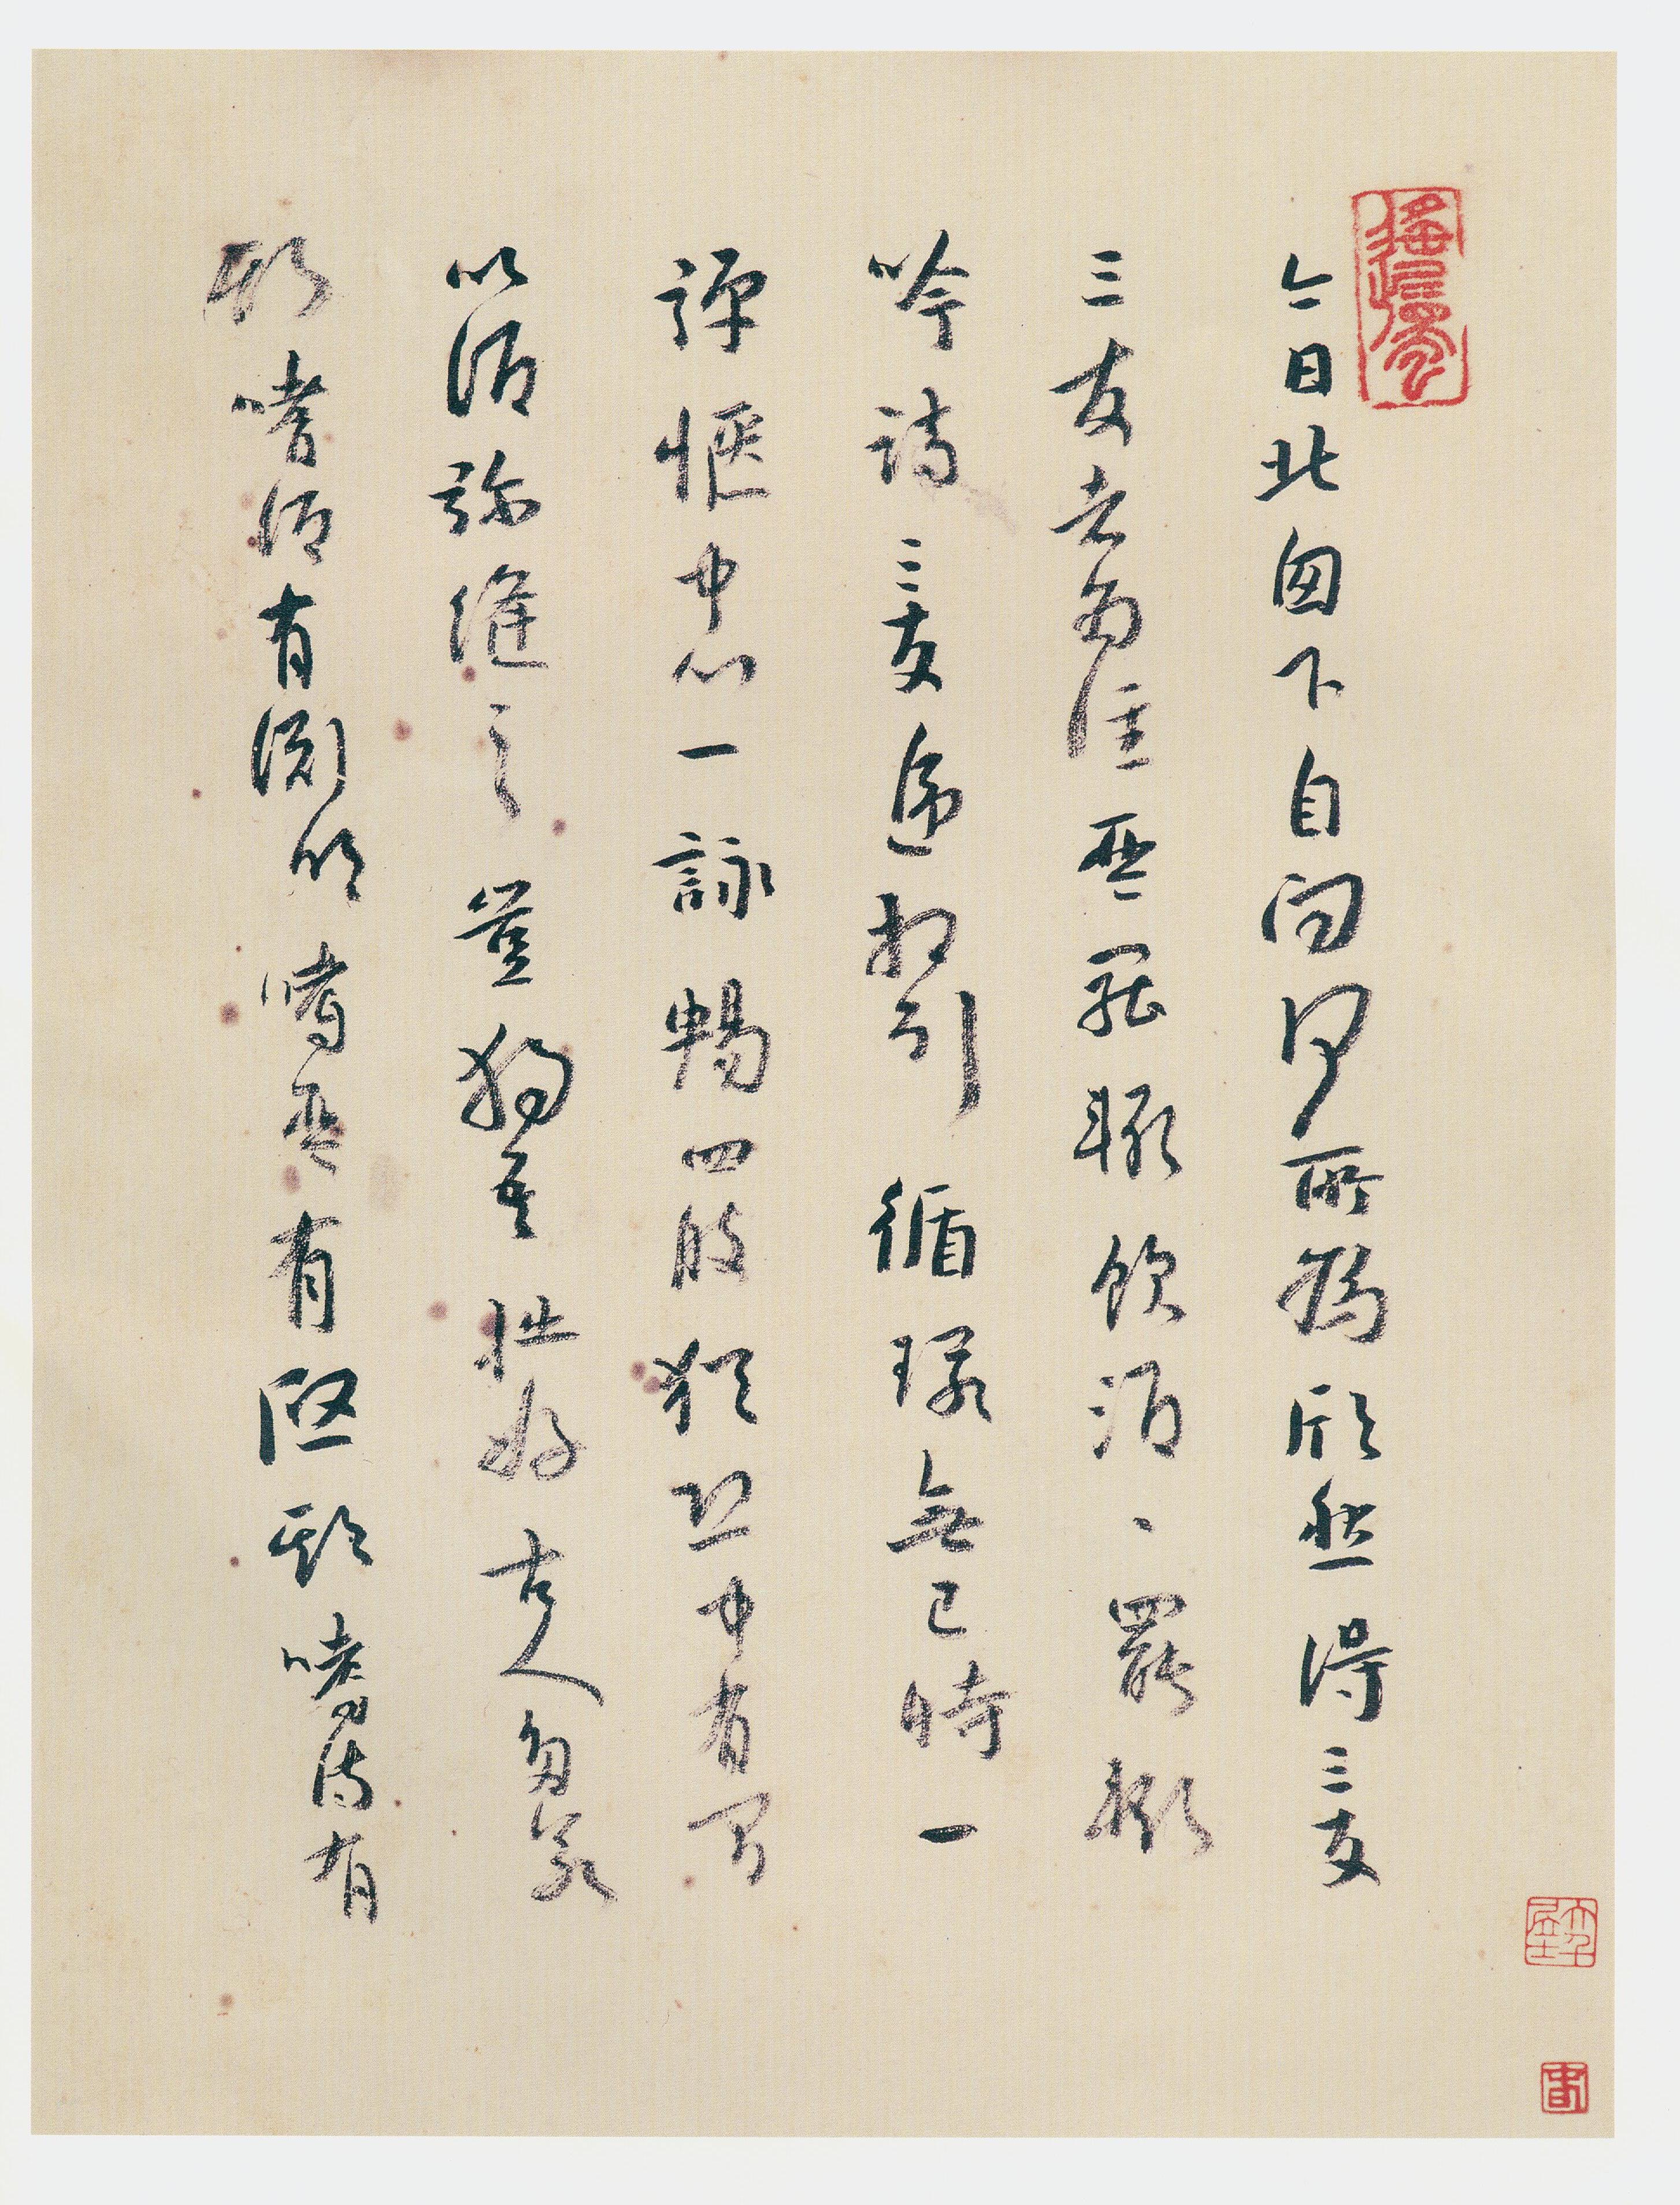 今日北囱下自问何所為欣然得三友
三友者為誰琴罷輒飲酒、罷輒
吟詩三友遞相引循環無已時一
彈愜中心一詠暢四肢猶恐中有間
以酒彌縫之豈獨吾拙好古人多若
斯嗜酒有淵明嗜琴有啓期嗜詩有